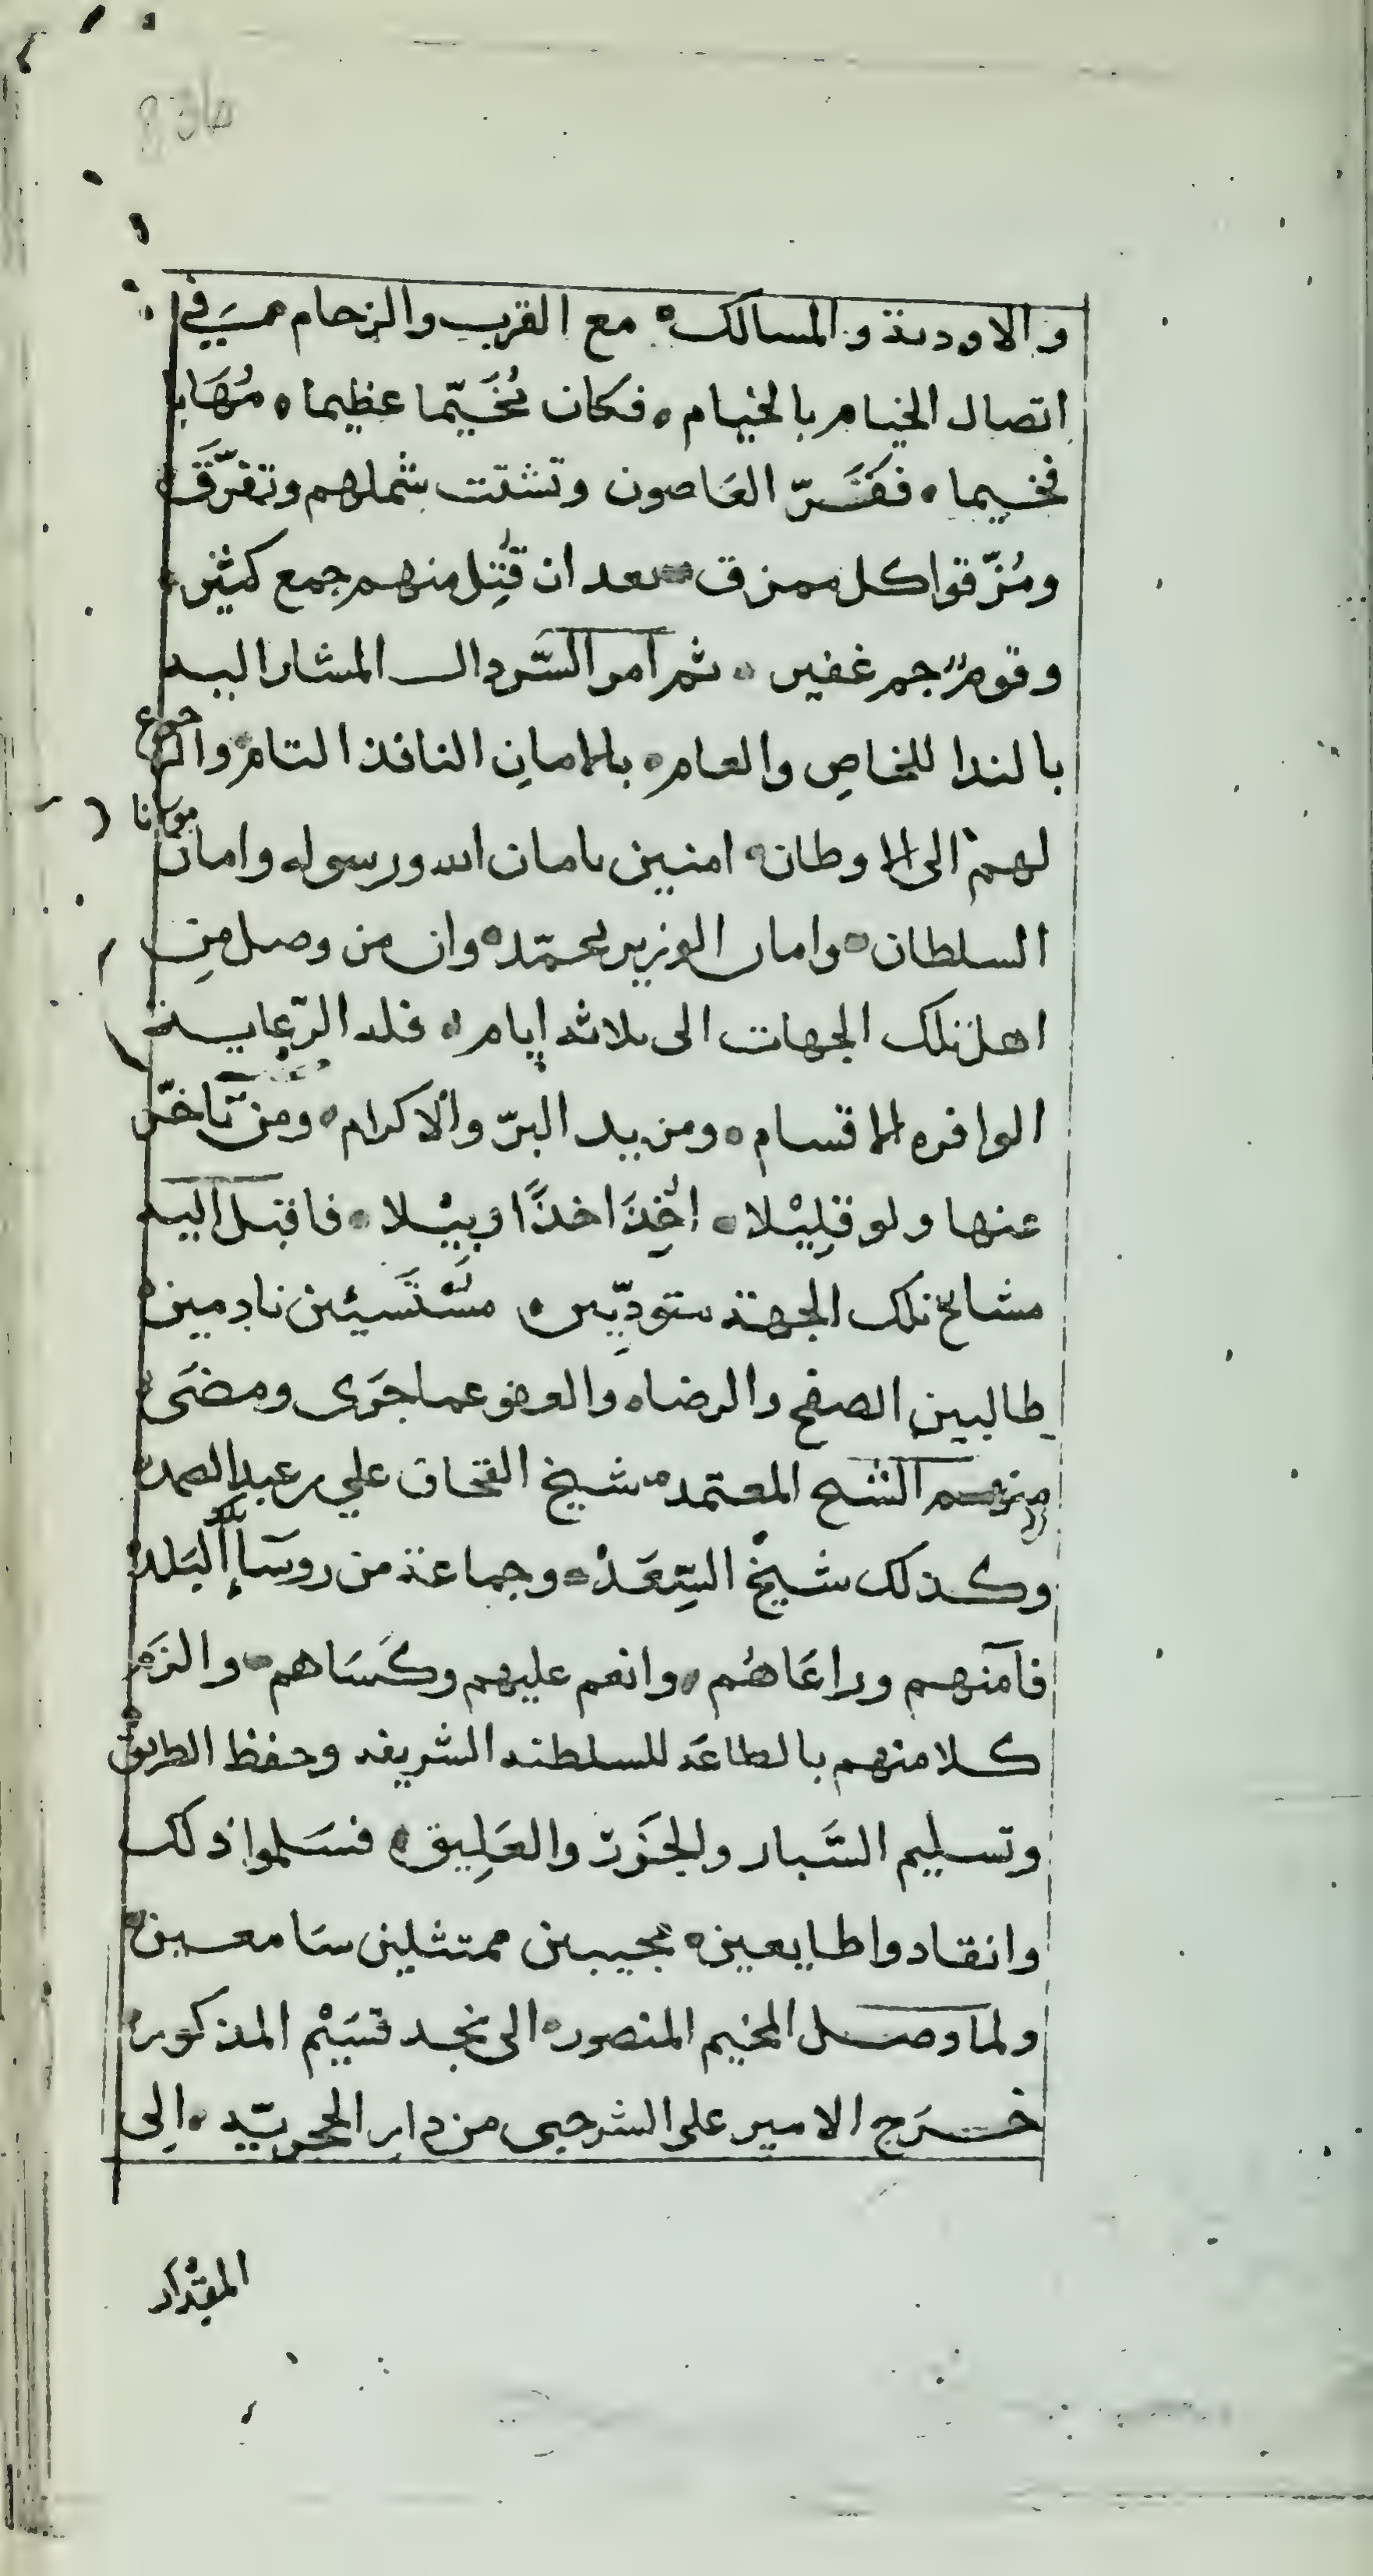 والاودىة والمسالك ه مع القرب والزحام في
اتصال الخيام بالخيام ه فكان مُخَيّما عظيما ه مُهَابا
فخيما ه ففَرَّ العَاصون وتشتت شملهم وتفرّقَ ه
ومُزّقوا كل ممزق ه ىعد ان قُتِل منهم جمع كثير ه
وقومٌ جم غفير ه ثم امر السَّردار المشار اليه
بالندا للخاصِ والعام ه بالامانِ النافذ التام والرجوع
لهم الى الاوطان ه امنين بامان الله ورسوله وامان مولانا
السلطان ه وامان الوزير محمّد ه وان من وصل مِن
اهل تلك الجهات الى ثلاثه ايام ه فله الرّعاية
الوافره الاقسام ه ومزيد البرّ والاكرام ه ومن تَأخّر
عنها ولو قلِيْلا ه اُخِذَ اخذًا وبِيْلا ه فاقبل اليه
مشايخ تلك الجهة نادمين ه
طالبين الصفح والرضاه والعفو عما جَرَى ومضَى ه
منهم الشيخ المعتمد ه شيخ القحاف علي بن عبد الصمد ه
وكذلك شيخ السِّعَدْ ه وجماعة من روسَاء البَلد ه
فآمنهم وراعَاهُم ه وانعم عليهم وكَسَاهم ه والزَم
كلا منهم بالطاعَه للسلطنه الشريفه وحفظ الطريق ه
وتسليم السَّبار والجَزَرْ والعَلِيق ه فسَلموا ذلك
وانقادوا طايعين ه مجيبين ممتثلين سَامعين ه
ولما وصل المخيم المنصور ه الى نجد قسَيْم المذكور ه
خرَج الامير على الشرجبى من دار ه الى
المقدار